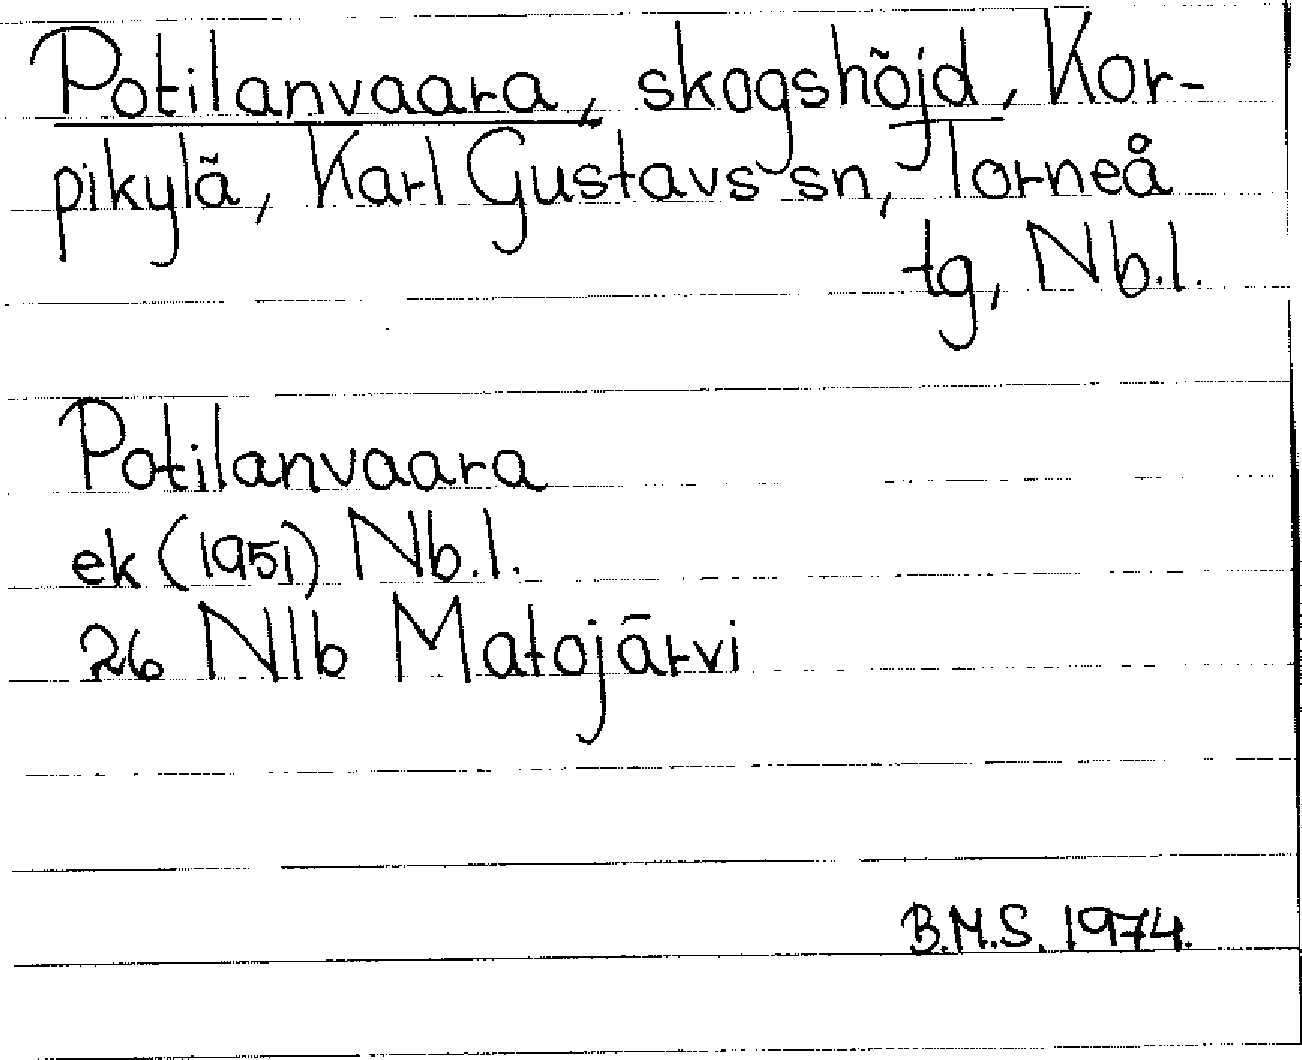 Potilanvaara, skogshöjd, Kor-
pikylä, Karl Gustavs sn, Torneå
tg, Nb.l.
Potilanvaara
ek (1951) Nb.l.
26 Nlb Matojärvi
B.M.S. 1974.